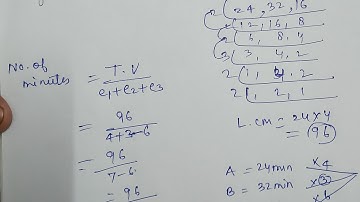 2 | 24, 32, 16
2 | 12, 16, 8
2 | 6, 8, 4
2 | 3, 4, 2
2 | 1, 4, 2
2 | 1, 2, 1
L.cm = 24×4
= 96
No. of minutes = T.V / e1+e2+e3
= 96 / 4+3-6
= 96 / 7-6
= 96
A = 24min ×4
B = 32min ×3
×6